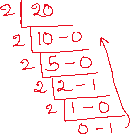 2 20
2 10 - 0
2 5 - 0
2 2 - 1
2 1 - 0
0 - 1